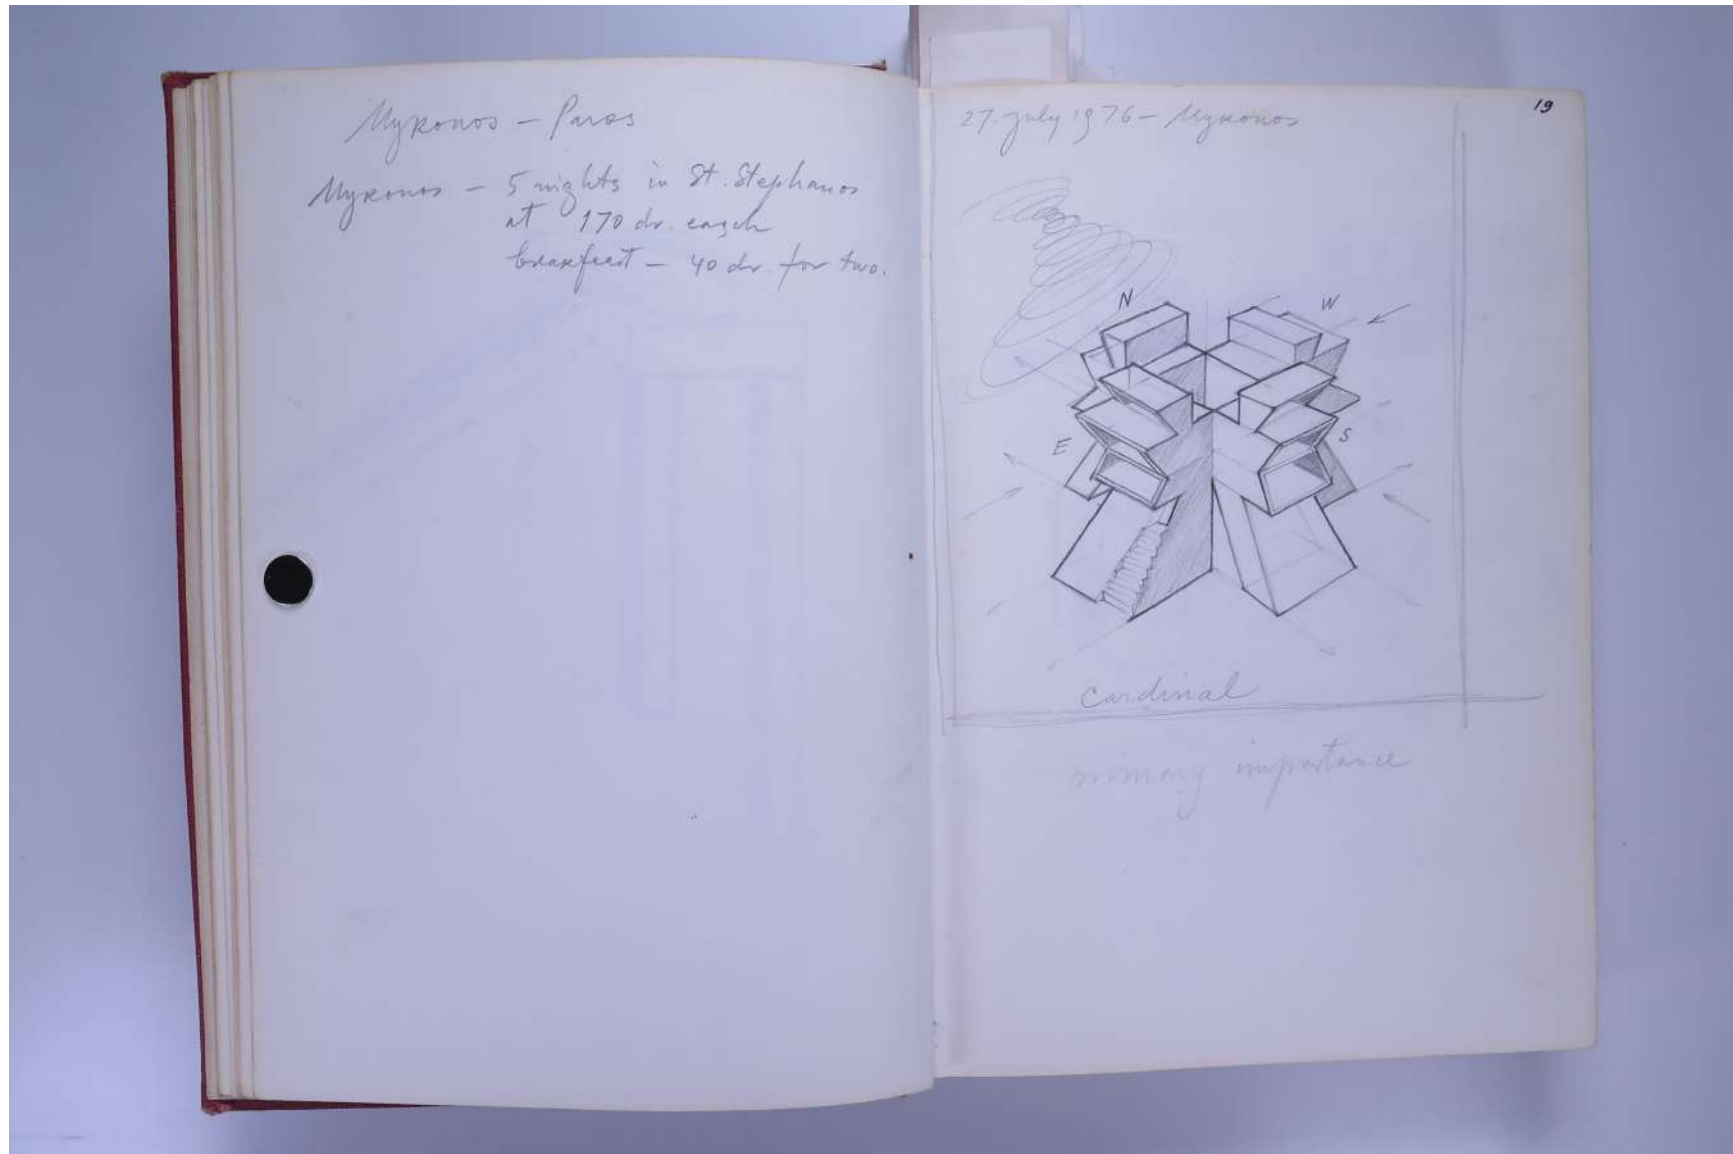 Mykonos – Paros
Mykonos – 5 nights in St. Stephanos
at 170 dr. eagch
breakfeast – 40 dr. for two.
27. july 1976 – Mykonos
19
N
W
E
S
Cardinal
primary importance